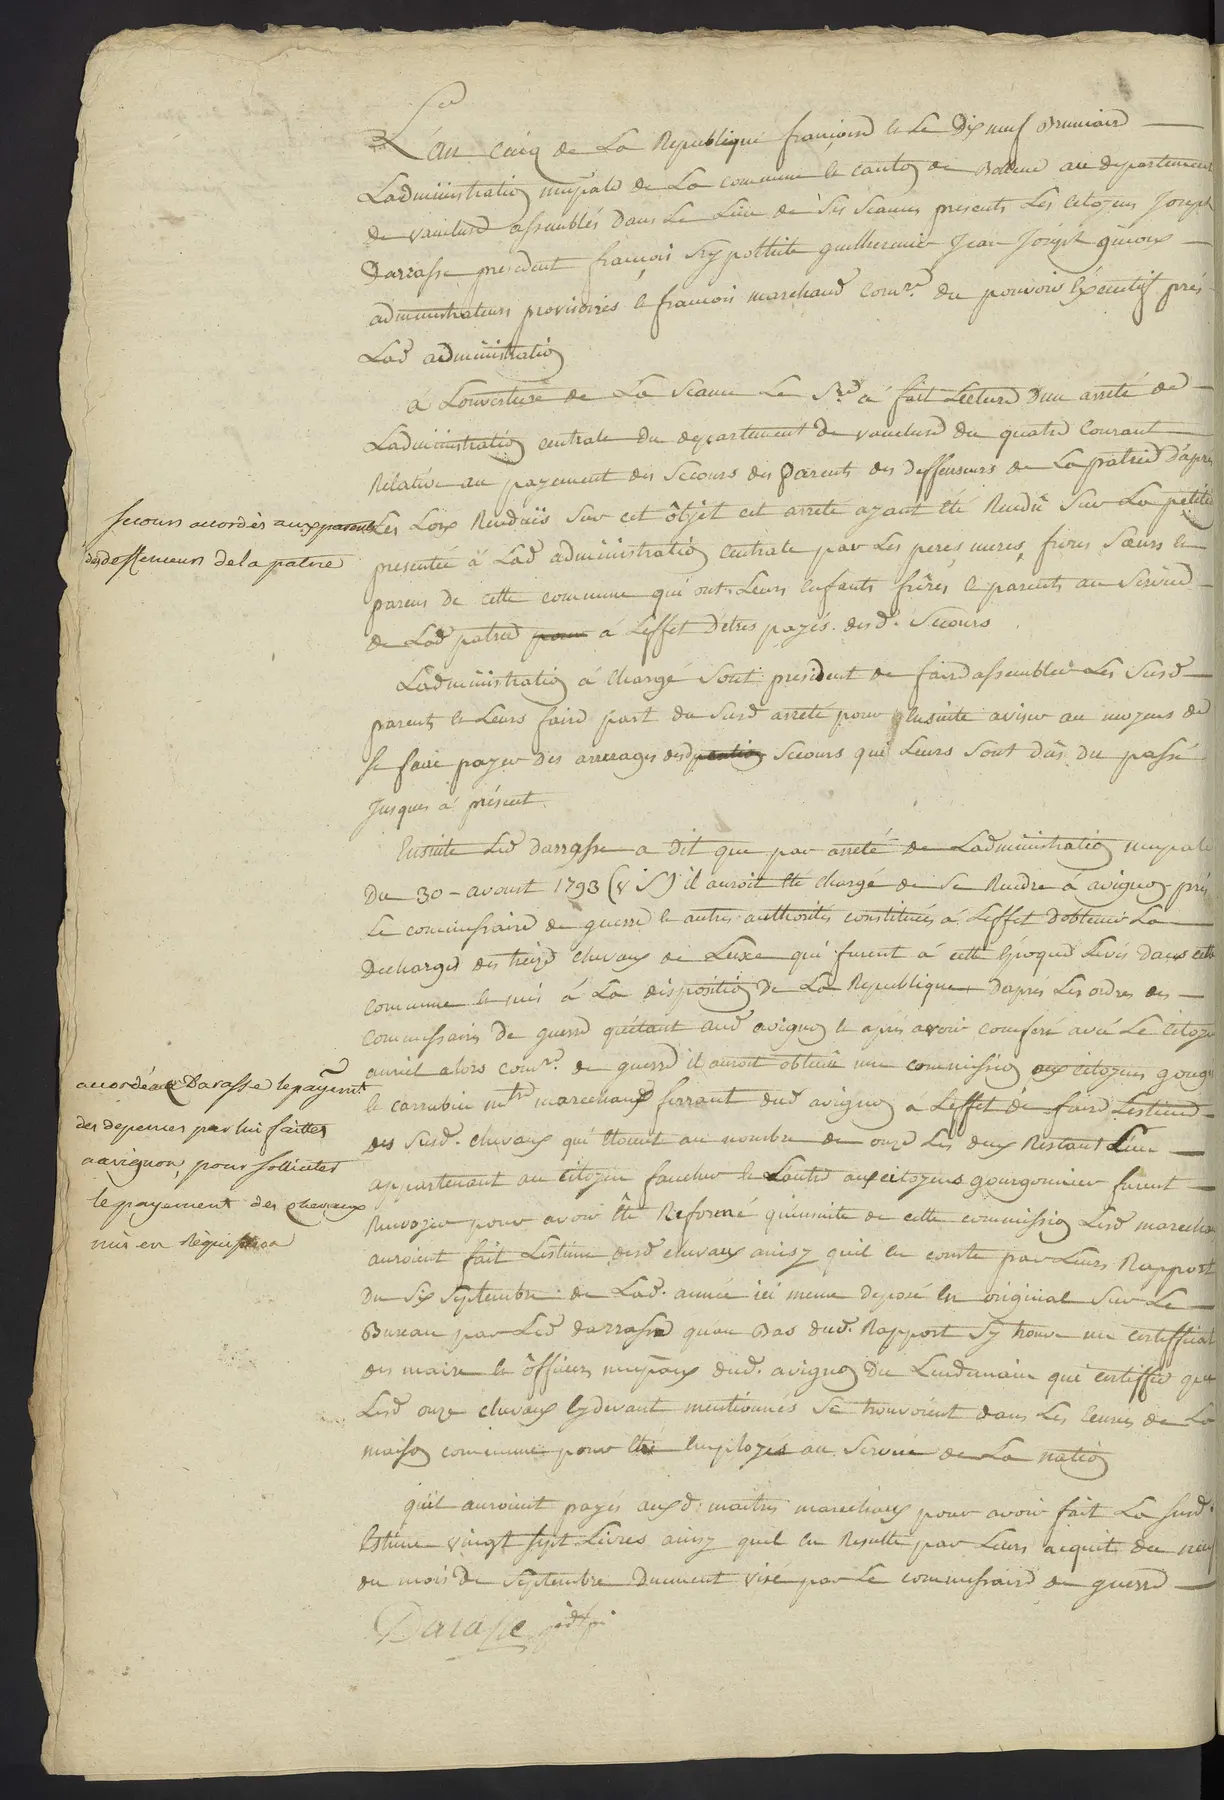 L'an cinq de La Republique françoise & Le Dix neuf Brumaire
Ladministration mupale de La commune & canton de Bollene au departement
de vaucluse assemblés dans Le Lieu de ses seances presents Les citoyens Joseph
Darrasse president françois hypollitte guilhermier Jean Joseph
administrateurs provisoires & françois marchand Comre. du pouvoir Exécutif prés
Lad administration
a Louverture de La seance Le Sre. á fait Lecture d'un arreté de
Ladministration centrale du departement de vaucluse du quatre Courant
Rélative au payement des secours des parents des deffenseurs de La patrie d'apres
secours accordés aux parents
des deffenseurs de la patrie
Les Loix Renduës sur cet ôbjet cet arreté ayant eté Rendû sur La petition
presentée á Lad administration Centrale par Les peres, meres, freres Sœurs &
parens de cette commune qui ont Leurs enfants frêres & parents au service
de Lad patrie pour á Leffet d'etres payés desd. Secours
Ladministration á chargé sont president de faire assembler Les susd
parents & Leurs faire part du susd arreté pour Ensuite aviser au moyens de
se faire payer des arrerages desd Secours qui Leurs sont dûs du passé
Jusques á présent
Ensuite Led darrasse a dit que par arreté de Ladministration mupale
Du 30 avoust 1793 (v S) il auroit eté chargé de se Rendre á avignon prés
Le commissaire de guerre & autres authorités constituées á Leffet d'obtenir La
decharge des treize chevaux de Luxe qui furent á cette Epoque Levés dans cette
Commune & mis á La disposition de La Republique, daprés Les ordres des
Commissaires de guerre qu'étant aud avignon & aprés avoir conferé avec Le Citoyen
alors comre. de guerre il auroit obtenu une commission aux citoyens
accordé au Darasse le payemt.
des depences par lui faittes
a avignon, pour solliciter
le payement des chevaux
mis en Réquisition
& mtre marechaux ferrant dud avignon á Leffet de faire Lestime
des susd. chevaux qui etoient au nombre de onze Les deux Restant L'un
appartenant au Citoyen faucher & L'autre aux citoyens gourgonnier furent
Renvoyer pour avoir êtê Reformé qu'ensuite de cette commission Lesd marechaux
auroient fait Lestime desd chevaux ainsy quil en conste par Leurs Rapport
Du Six Septembre de Lad. année ici meme deposé en original sur Le
Bureau par Led darrasse qu'au Bas dud. Rapport Sy trouve un certifficat
des maire & ôfficiers mupaux dud. avignon Du Lendemain qui certiffie que
Lesd onze chevaux Cydevant mentionnés se trouvoient dans Les Ecuries de La
maison commune pour être Employés au service de La nation
qu'il auroient payés auxd. maitres marechaux pour avoir fait La susd.
Estime vingt sept Livres ainsy quil en Resulte par Leurs acquit du neuf
du mois de Septembre Dument visé par Le commissaire de guerre
Darasse